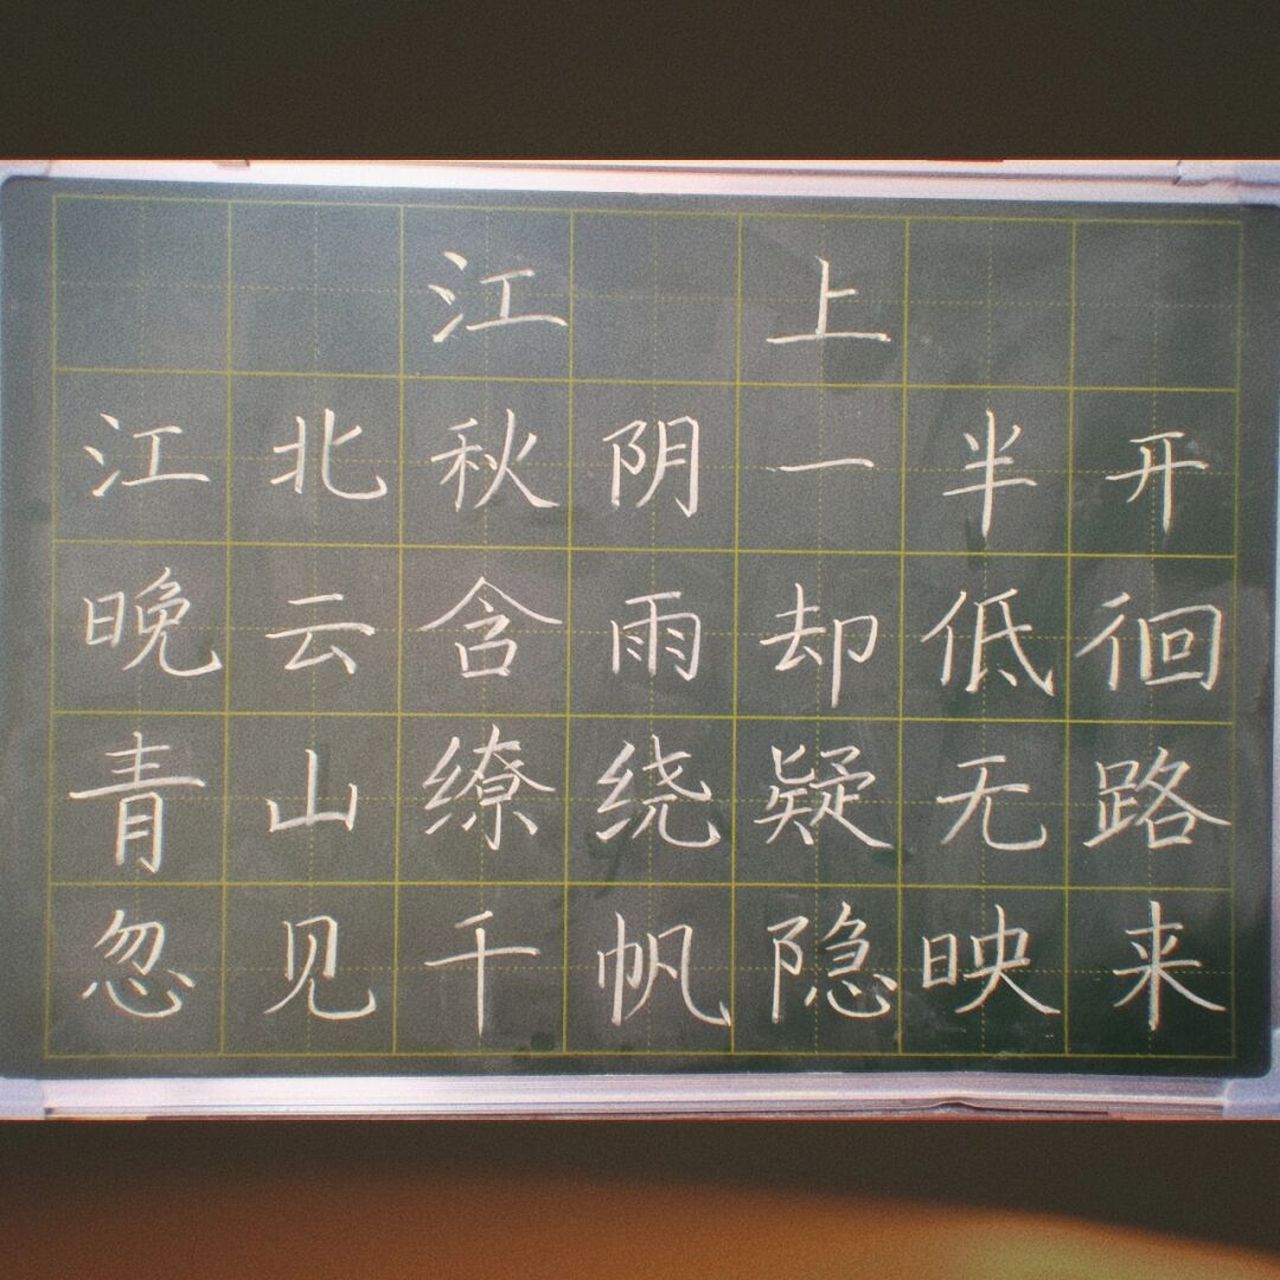 江上
江北秋阴一半开
晚云含雨却低徊
青山缭绕疑无路
忽见千帆隐映来